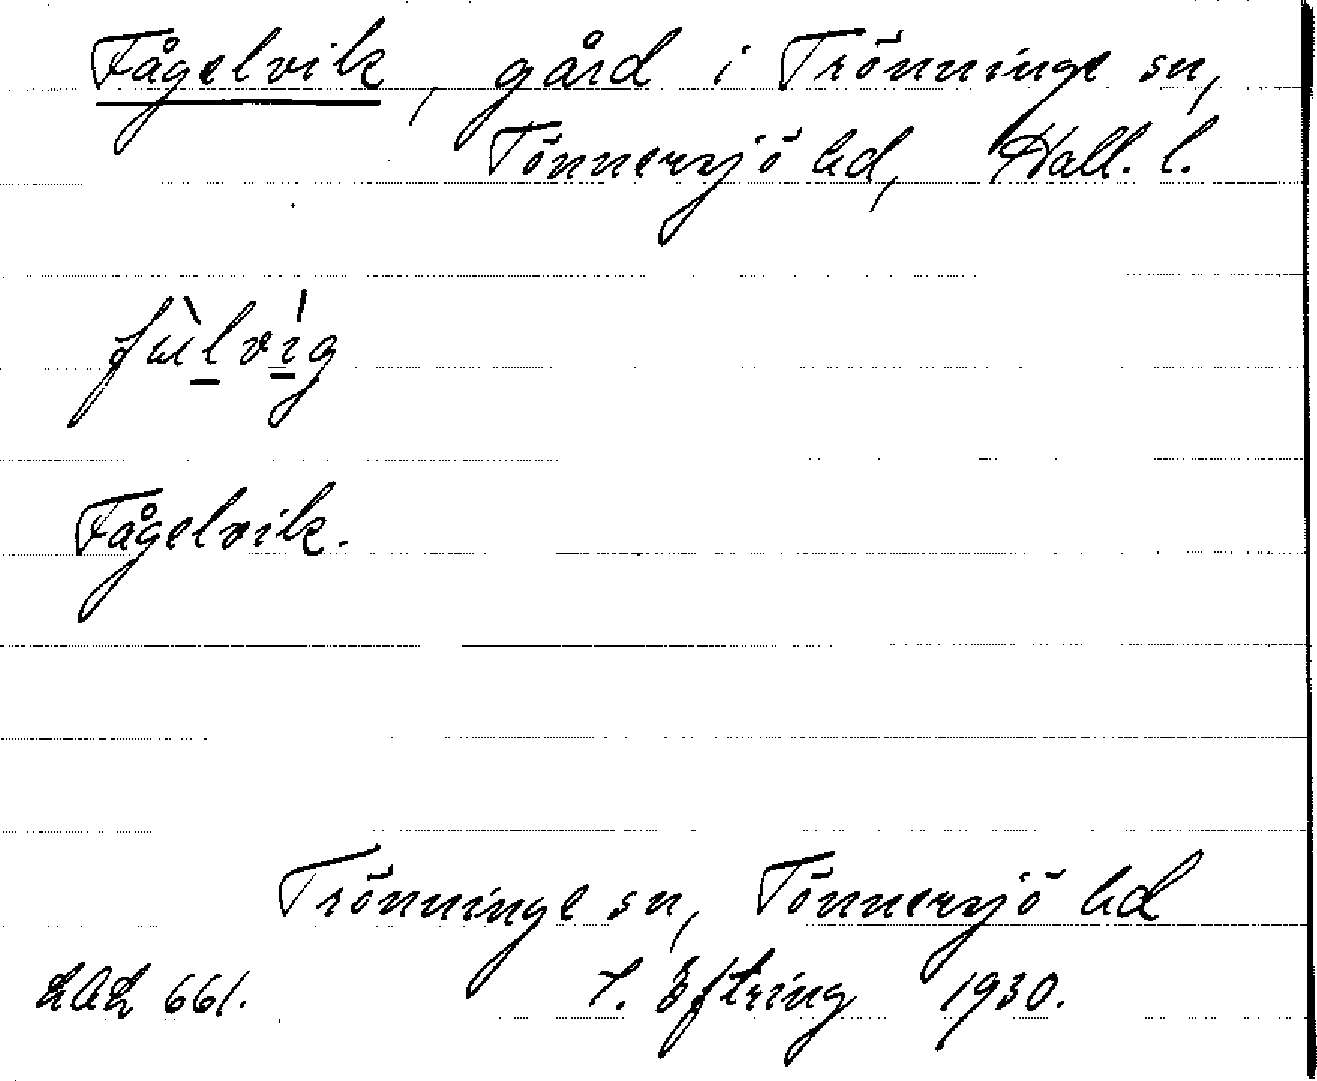 Fågelvik, gård i Trönninge sn,
Tönnersjö hd, Hall. l.
fùlvíg
Fågelvik.
Trönninge sn, Tönnersjö hd
661. Eftring 1930.